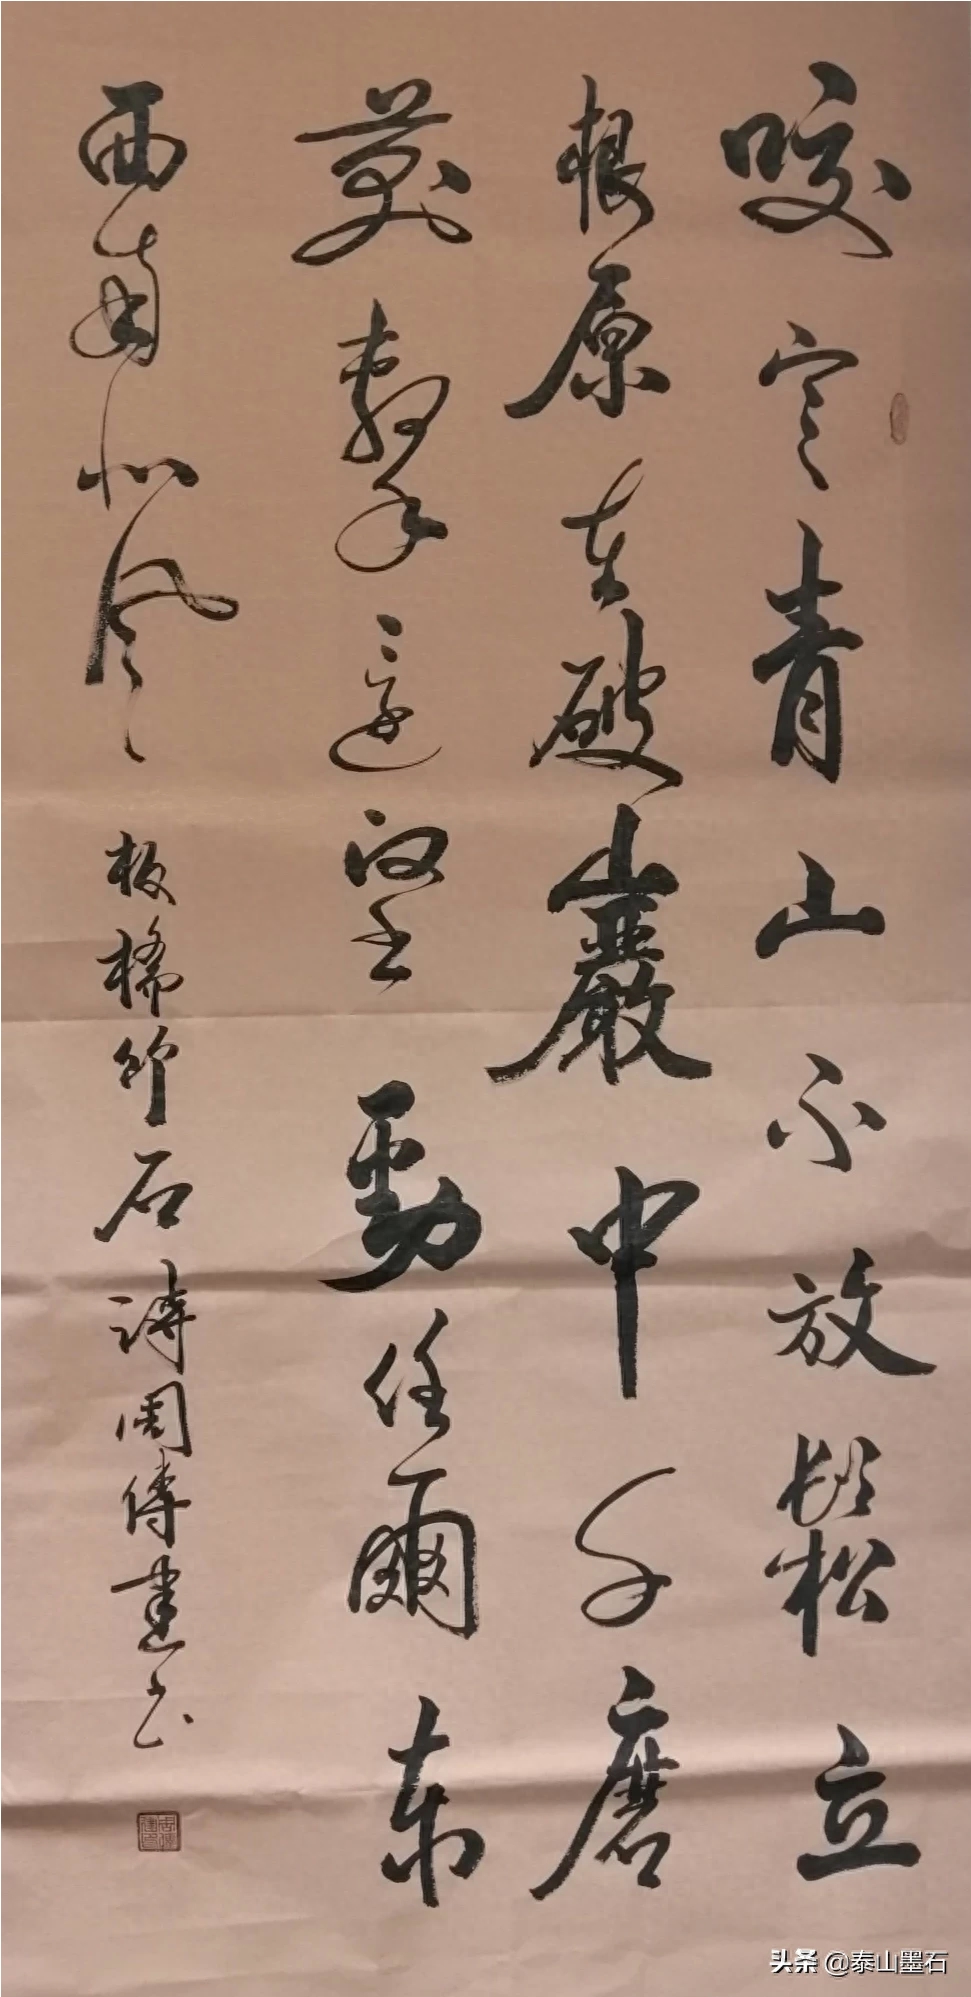 咬定青山不放鬆立
根原在破巖中千磨
萬擊還堅勁任爾東
西南北風 板橋竹石詩周傳建書
头条 @泰山墨石